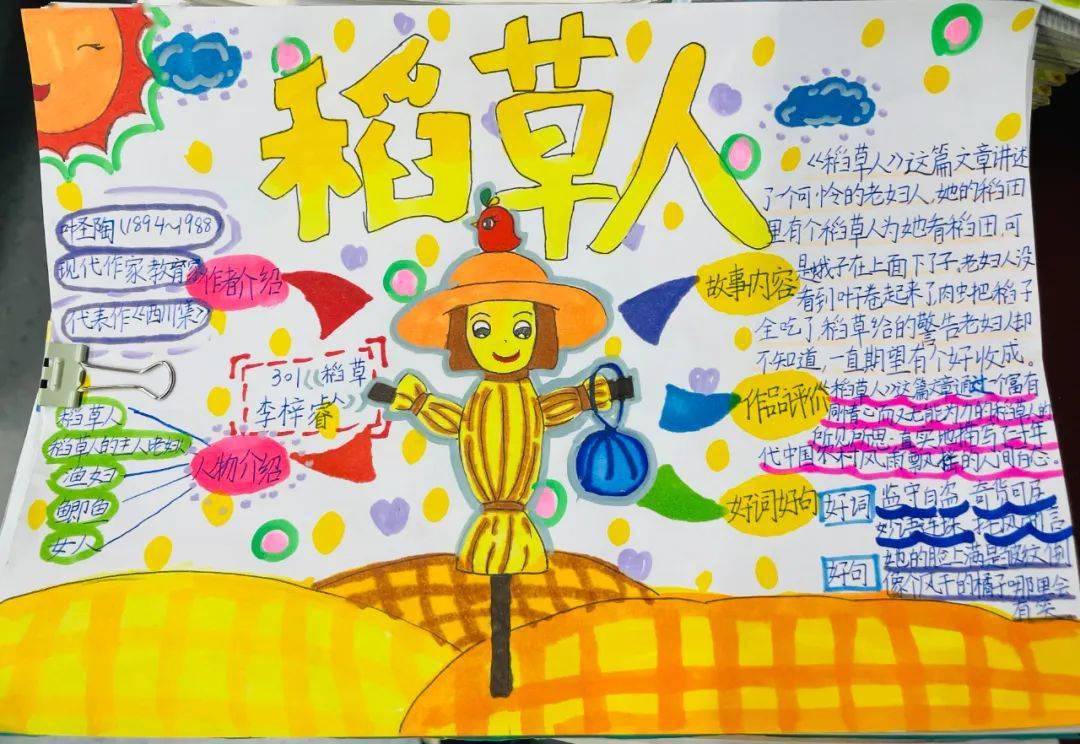 稻草人
叶圣陶(1894~1988)
现代作家教育家
代表作《西川集》
作者介绍
301 稻草人
李梓睿
人物介绍
稻草人
稻草人的主人老妇人
渔妇
鲫鱼
女人
故事内容
《稻草人》这篇文章讲述
了一个可怜的老妇人,她的稻田
里有个稻草人为她看稻田,可
是蛾子在上面下了子,老妇人没
看到叶卷起来了,肉虫把稻子
全吃了,稻草给的警告老妇人却
不知道,一直期望有个好收成。
作品评价
《稻草人》这篇文章通过一个富有
同情心而又无能为力的稻草人的
所见所思,真实地描写了二十年
代中国农村风雨飘摇的人间百态。
好词好句
好词
监守自盗 奇货可居
妙语连珠
好句
她的脸上满是皱纹,倒
像个风干的橘子,哪里会